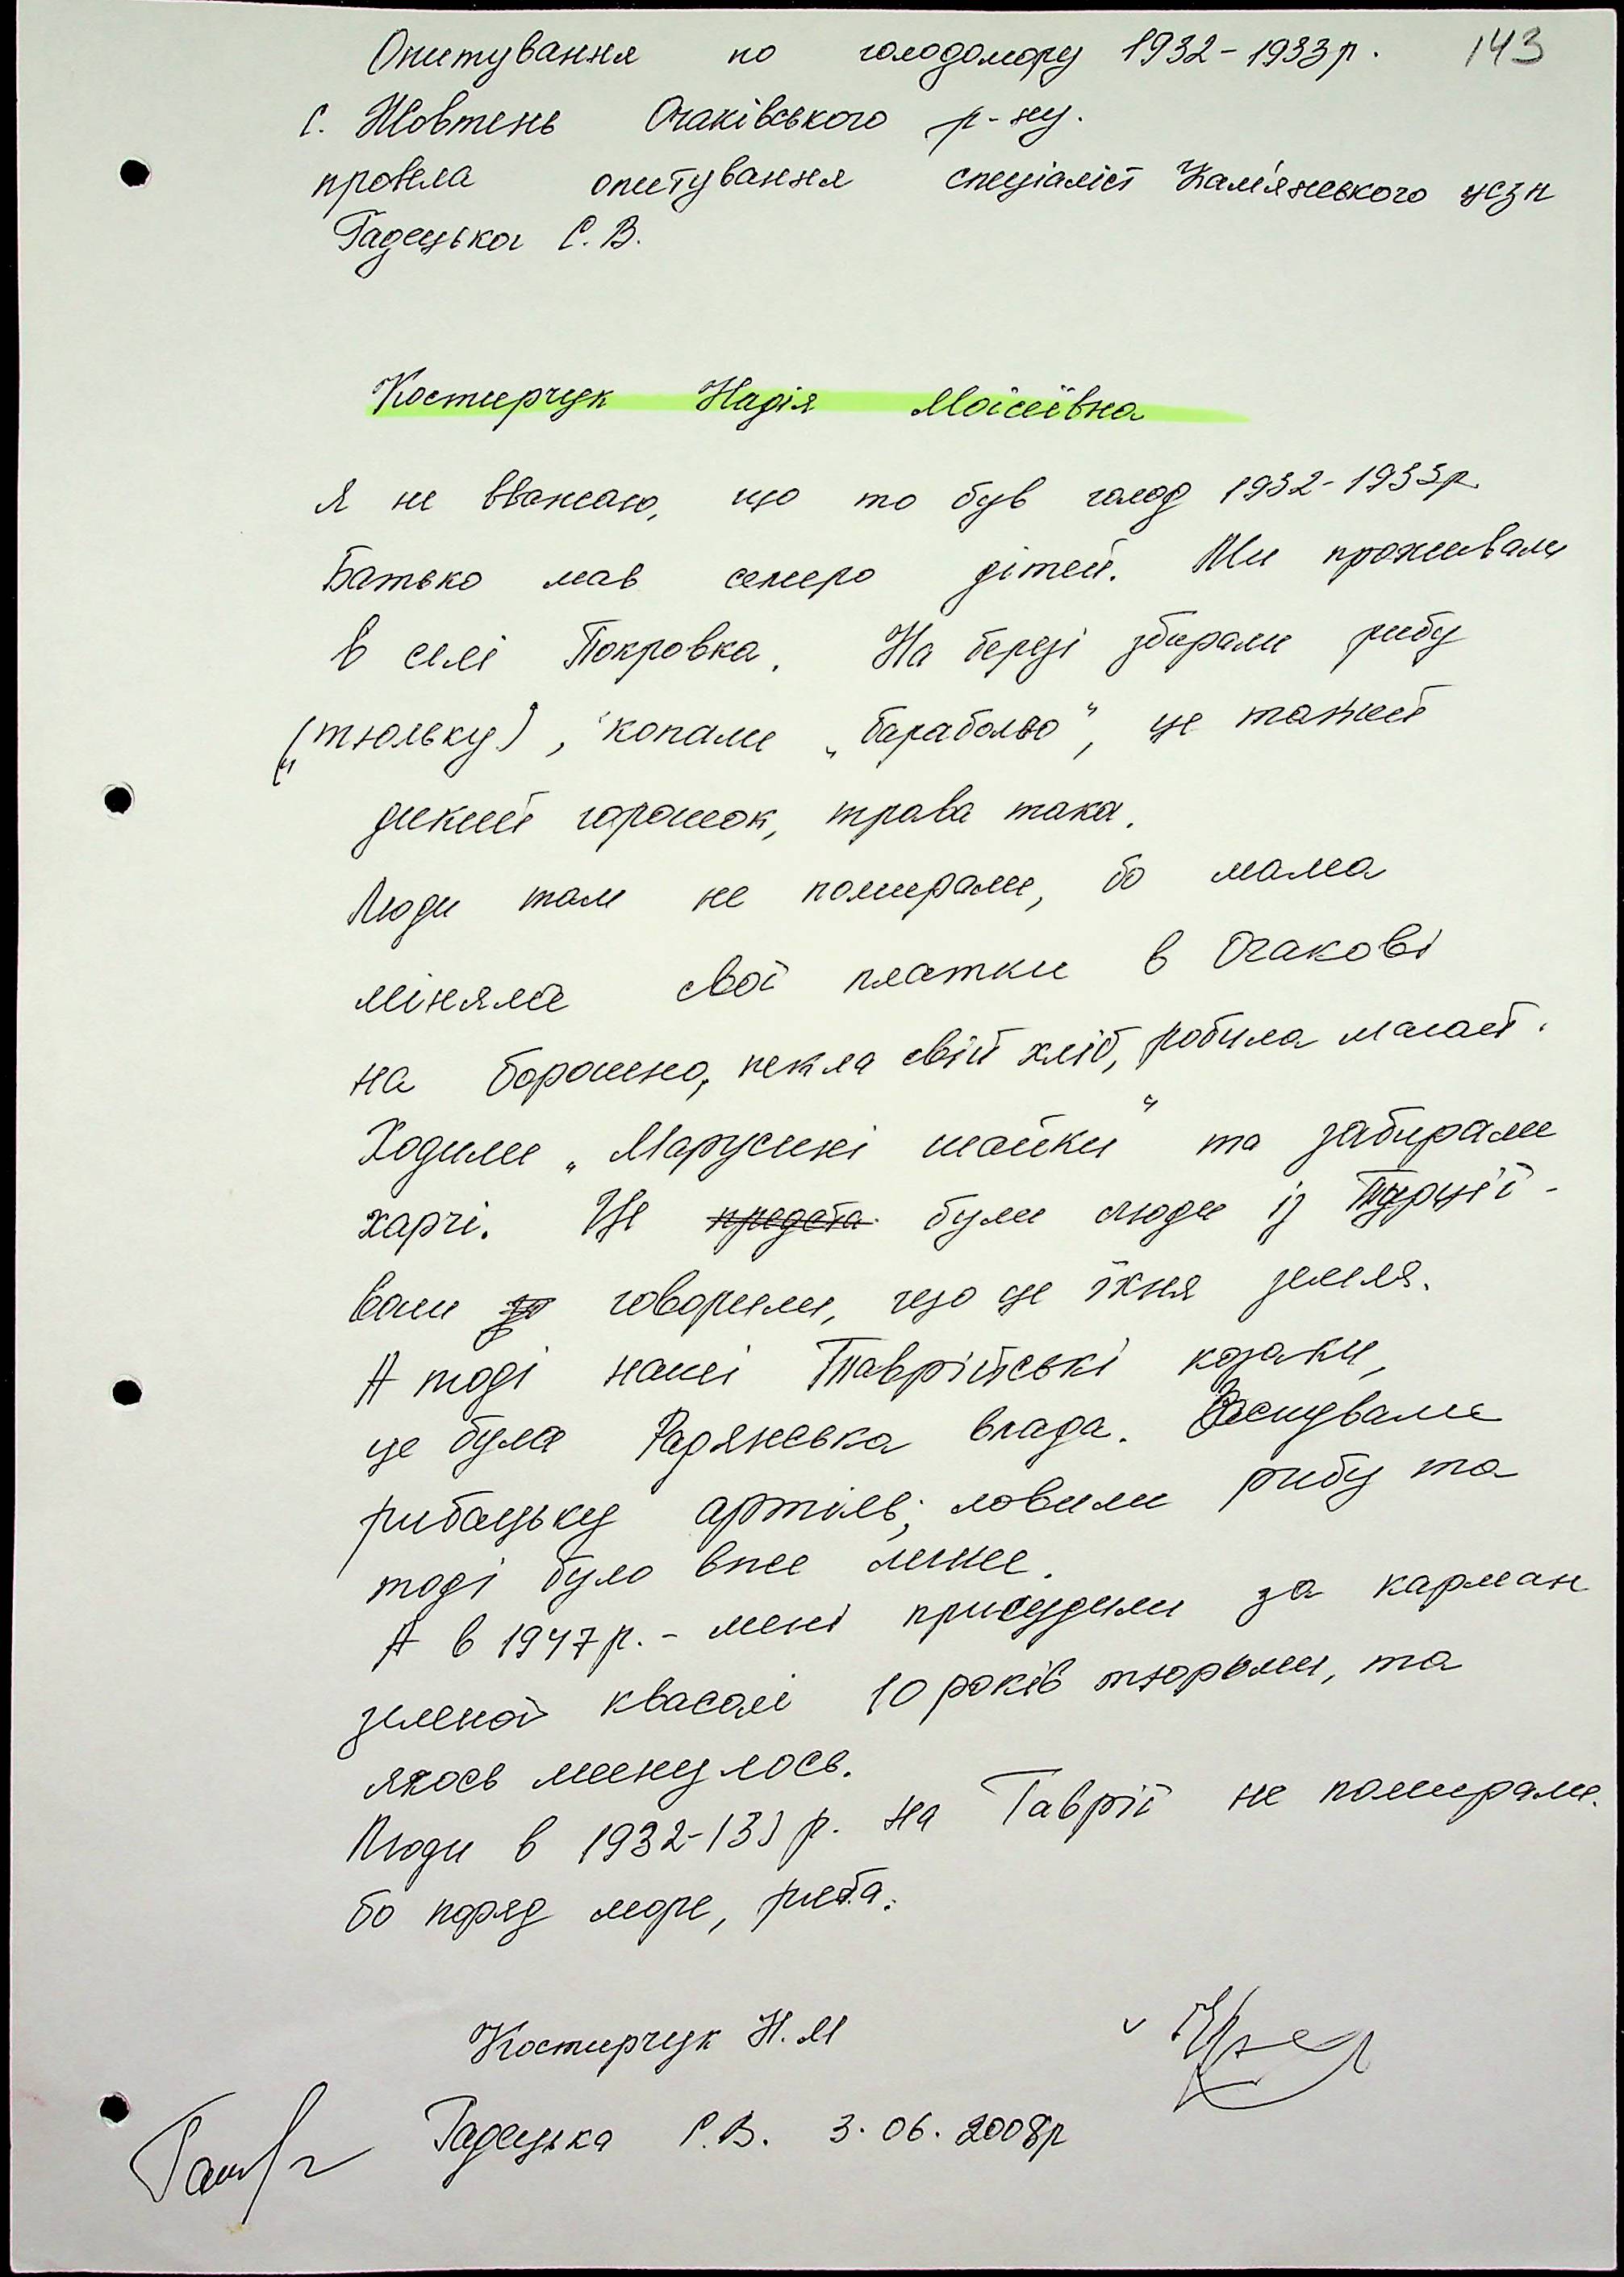 143
Опитування по голодомору 1932-1933р.
с. Жовтень Очаківського р-ну.
провела опитування спеціаліст Кам'янського усзн
Гадецька С. В.
Костирчук Надія Моісеївна
Я не вважаю, що то був голод 1932-1933р.
Батько мав семеро дітей. Ми проживали
в селі Покровка. На березі збирали рибу
(тюльку), копали „бараболью", це такий
дикий горошок, трава така.
Люди там не помирали, бо мама
міняла свої платки в Очакові
на борошно, пекла свій хліб, робила
Ходили „Марусині шайки" та забирали
харчі. Це предста були люди із Турції -
вони говорили, що це їхня земля.
А тоді наші Таврійські козаки,
це була Радянська влада. Заснували
рибацьку артіль, ловили рибу та
тоді було вже лише.
А в 1947р. - мені присудили за карман
зеленої квасолі 10 років тюрьми, та
якось минулось.
Люди в 1932-133 р. на Таврії не помирали.
бо поряд море, риба.
Костирчук Н. М
Гадецька С. В. 3. 06. 2008р